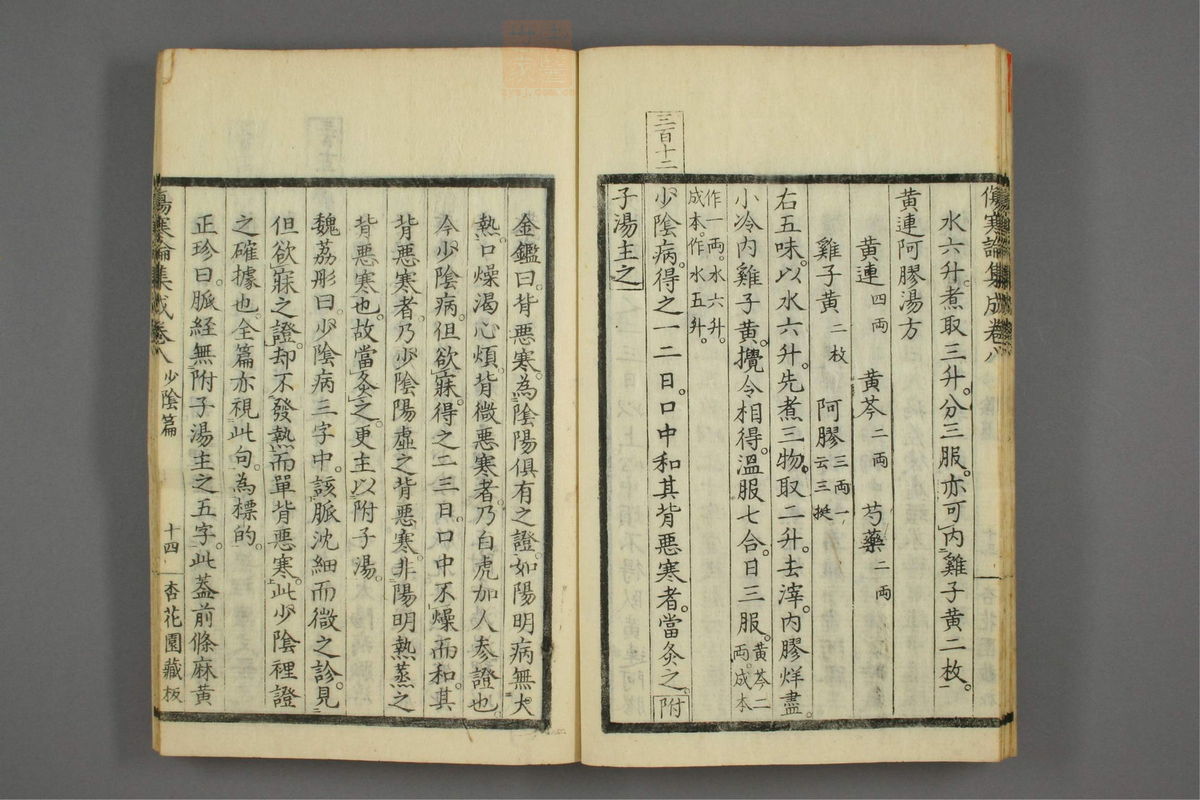 傷寒論集成卷八
水六升。煮取三升。分三服。亦可內雞子黃二枚。
黃連阿膠湯方
黃連四兩 黃芩二兩 芍藥二兩
雞子黃二枚 阿膠三兩一云三挺
右五味。以水六升。先煮三物。取二升。去滓。內膠烊盡。
小冷內雞子黃。攪令相得。溫服七合。日三服。黃芩二兩。成本
作一兩。水六升。成本。作水五升。
三百十二
少陰病。得之一二日。口中和其背惡寒者。當灸之。附
子湯主之
金鑑曰。背惡寒。為陰陽俱有之證。如陽明病無大
熱。口燥渴心煩。背微惡寒者。乃白虎加人參證也。
今少陰病。但欲寐。得之二三日。口中不燥而和。其
背惡寒者。乃少陰陽虛之背惡寒。非陽明熱蒸之
背惡寒也。故當灸之。更主以附子湯。
魏荔彤曰。少陰病三字中。該脈沈細而微之診。見
但欲寐之證。却不發熱。而單背惡寒。此少陰裡證
之確據也。全篇亦視此句。為標的。
正珍曰。脈經無附子湯主之五字。此蓋前條麻黃
傷寒論集成卷八 少陰篇 十四 杏花園藏板